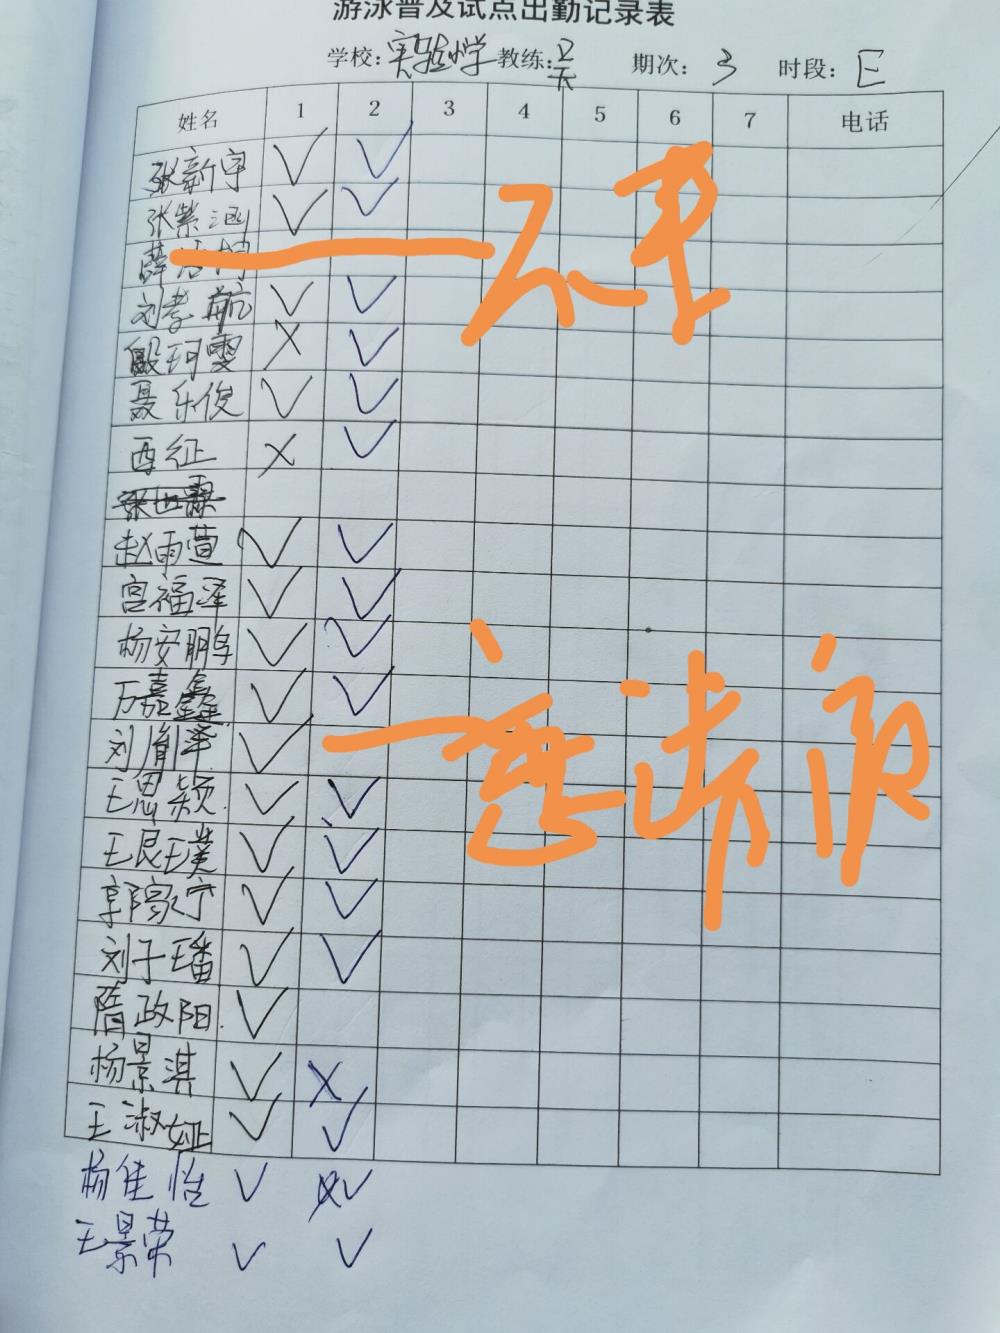 游泳普及试点出勤记录表
学校:实验小学 教练: 期次: 3 时段: E
姓名 1 2 3 4 5 6 7 电话
张新宇 ✓ ✓
张紫涵 ✓ ✓
薛 不来
刘孝航 ✓ ✓
殷珂雯 X ✓
聂乐俊 ✓ ✓
西征 X ✓
赵雨萱 ✓ ✓
宫福泽 ✓ ✓
杨安鹏 ✓ ✓
万嘉鑫 ✓ ✓
刘胤泽 ✓
王思颖 ✓ ✓
王艮璞 ✓ ✓
郭家宁 ✓ ✓
刘子璠 ✓ ✓
隋政阳 ✓
杨景淇 ✓ X
王淑娅 ✓ ✓
杨佳怡 ✓ ✓
王景荣 ✓ ✓